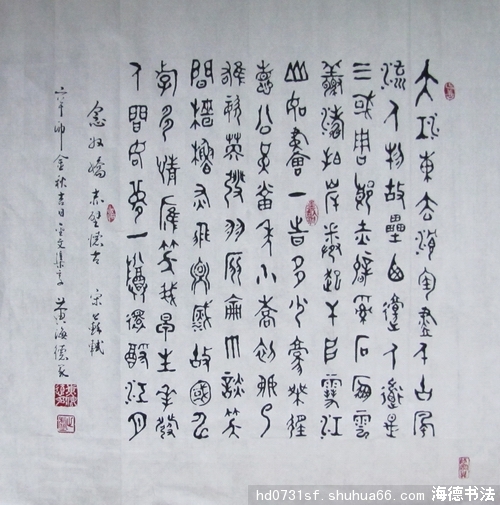 大江東去浪淘盡千古風
流人物故壘西邊人道是
三國周郎赤壁亂石崩雲
驚濤拍岸卷起千堆雪江
山如畫一時多少豪傑遙
想公瑾當年小喬初嫁了
雄姿英發羽扇綸巾談笑
間檣櫓灰飛煙滅故國神
遊多情應笑我早生華發
人間如夢一樽還酹江月
念奴嬌 赤壁懷古 宋 蘇軾
金秋吉日 黃海德
hd0731sf.shuhua66.com 海德书法